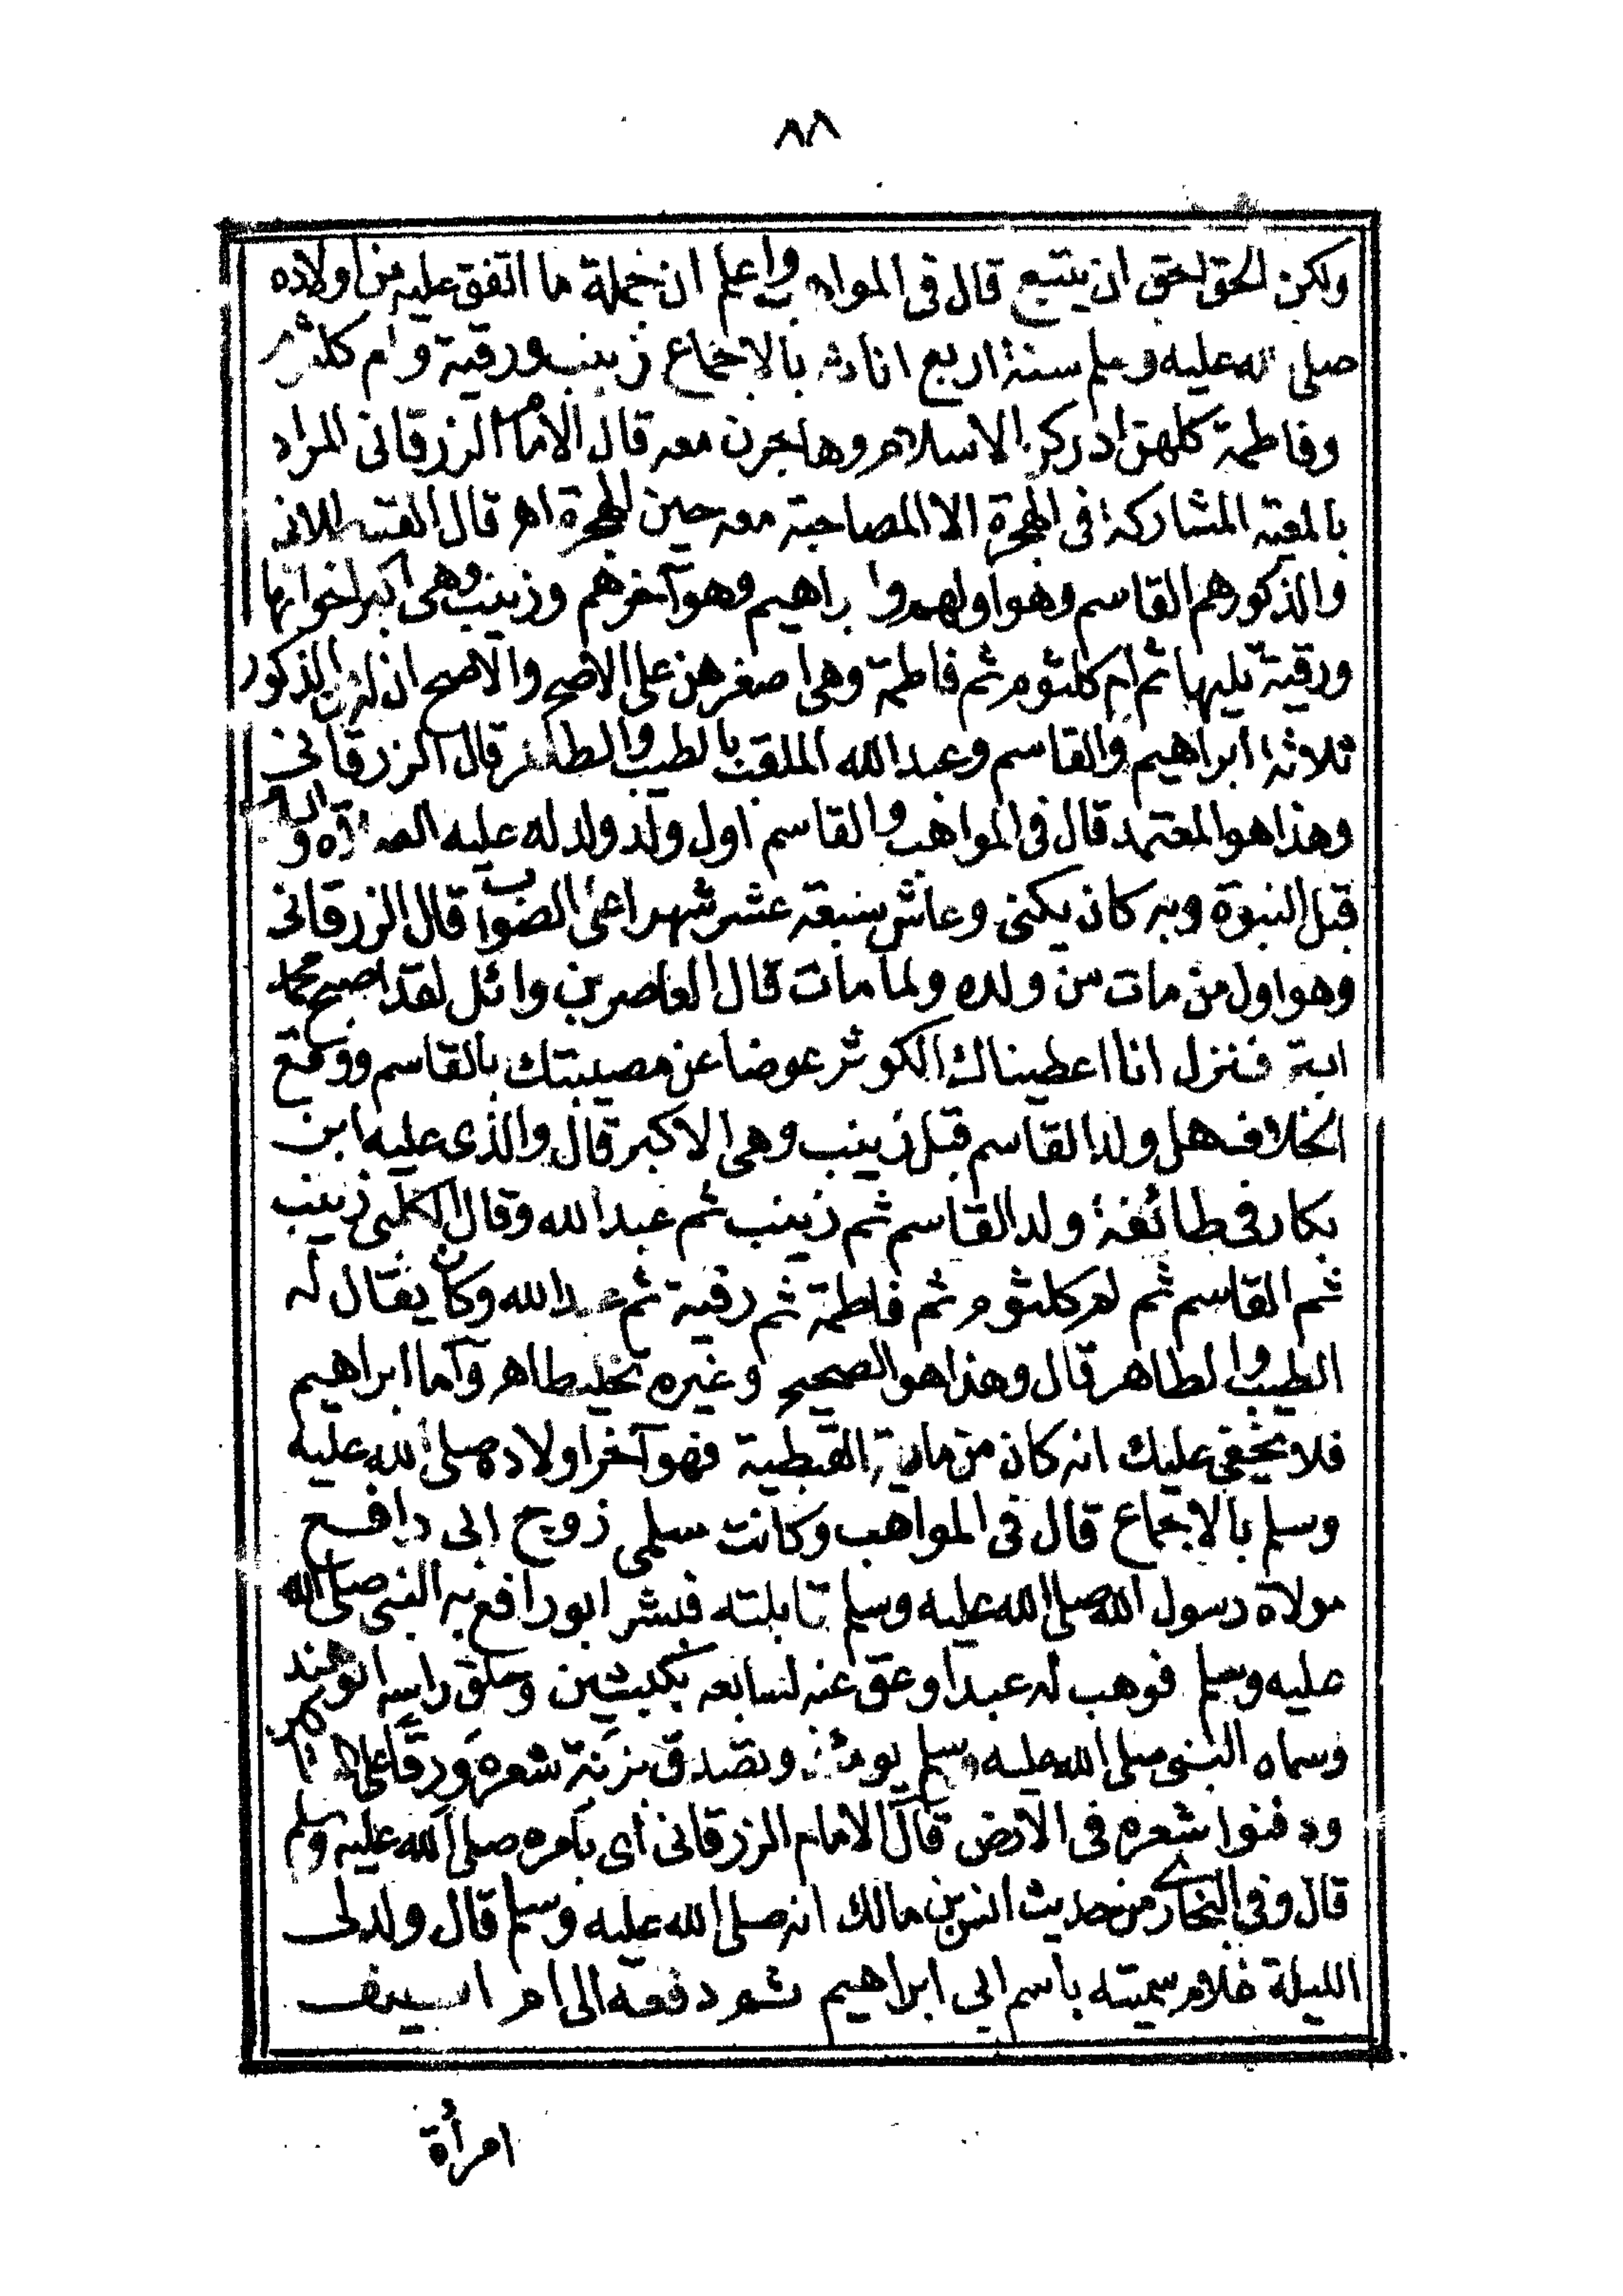 ٨٨
ولكن الحق احق ان يتبع قال فى المواهب واعلم ان جملة ما اتفق عليه من اولاده
صلى الله عليه وسلم ستة اربع اناث بالاجماع زينب ورقية وام كلثوم
وفاطمة كلهن ادركن الاسلام وهاجرن معه قال الامام الزرقانى المراد
بالمعية المشاركة فى الهجرة لا المصاحبة معه حين الهجرة اهـ قال القسطلانى
والذكورهم القاسم وهو اولهم وا براهيم وهو آخرهم وزينب وهى اكبر اخواتها
ورقية تليها ثم ام كلثوم ثم فاطمة وهى اصغرهن على الاصح والاصح ان له من الذكور
ثلاثة ابراهيم والقاسم وعبد الله الملقب بالطيب والطاهر قال الزرقانى
وهذا هو المعتمد قال فى المواهب والقاسم اول ولد ولد له عليه الصلاة والسلام
قبل النبوة وبه كان يكنى وعاش سبعة عشر شهرا على الصواب قال الزرقانى
وهو اول من مات من ولده ولما مات قال العاص بن وائل لقد اصبح محمد
ابتر فنزل انا اعطيناك الكوثر عوضا عن مصيبتك بالقاسم ووقع
الخلاف هل ولد القاسم قبل زينب وهى الاكبر قال والذى عليه ابن
بكار فى طائفة ولد القاسم ثم زينب ثم عبد الله وقال الكلبى زينب
ثم القاسم ثم ام كلثوم ثم فاطمة ثم رقية ثم عبد الله وكان يقال له
الطيب والطاهر قال وهذا هو الصحيح وغيره تخليط اهـ وآما ابراهيم
فلا يخفى عليك انه كان من مارية القبطية فهو آخر اولاده صلى الله عليه
وسلم بالاجماع قال فى المواهب وكانت سلمى زوج ابى رافع
مولاة رسول الله صلى الله عليه وسلم قابلته فبشر ابو رافع به النبى صلى الله
عليه وسلم فوهب له عبدا وعق عنه لسابعه بكبشين وحلق راسه ابو هند
وسماه النبى صلى الله عليه وسلم يومئذ وتصدق بزنة شعره ورقا على المساكين
ودفنوا شعره فى الارض قال الامام الزرقانى اى بامره صلى الله عليه وسلم
قال وفى البخارى من حديث انس بن مالك انه صلى الله عليه وسلم قال ولد لى
الليلة غلام سميته باسم ابى ابراهيم ثم دفعه الى ام سيف
امرأة